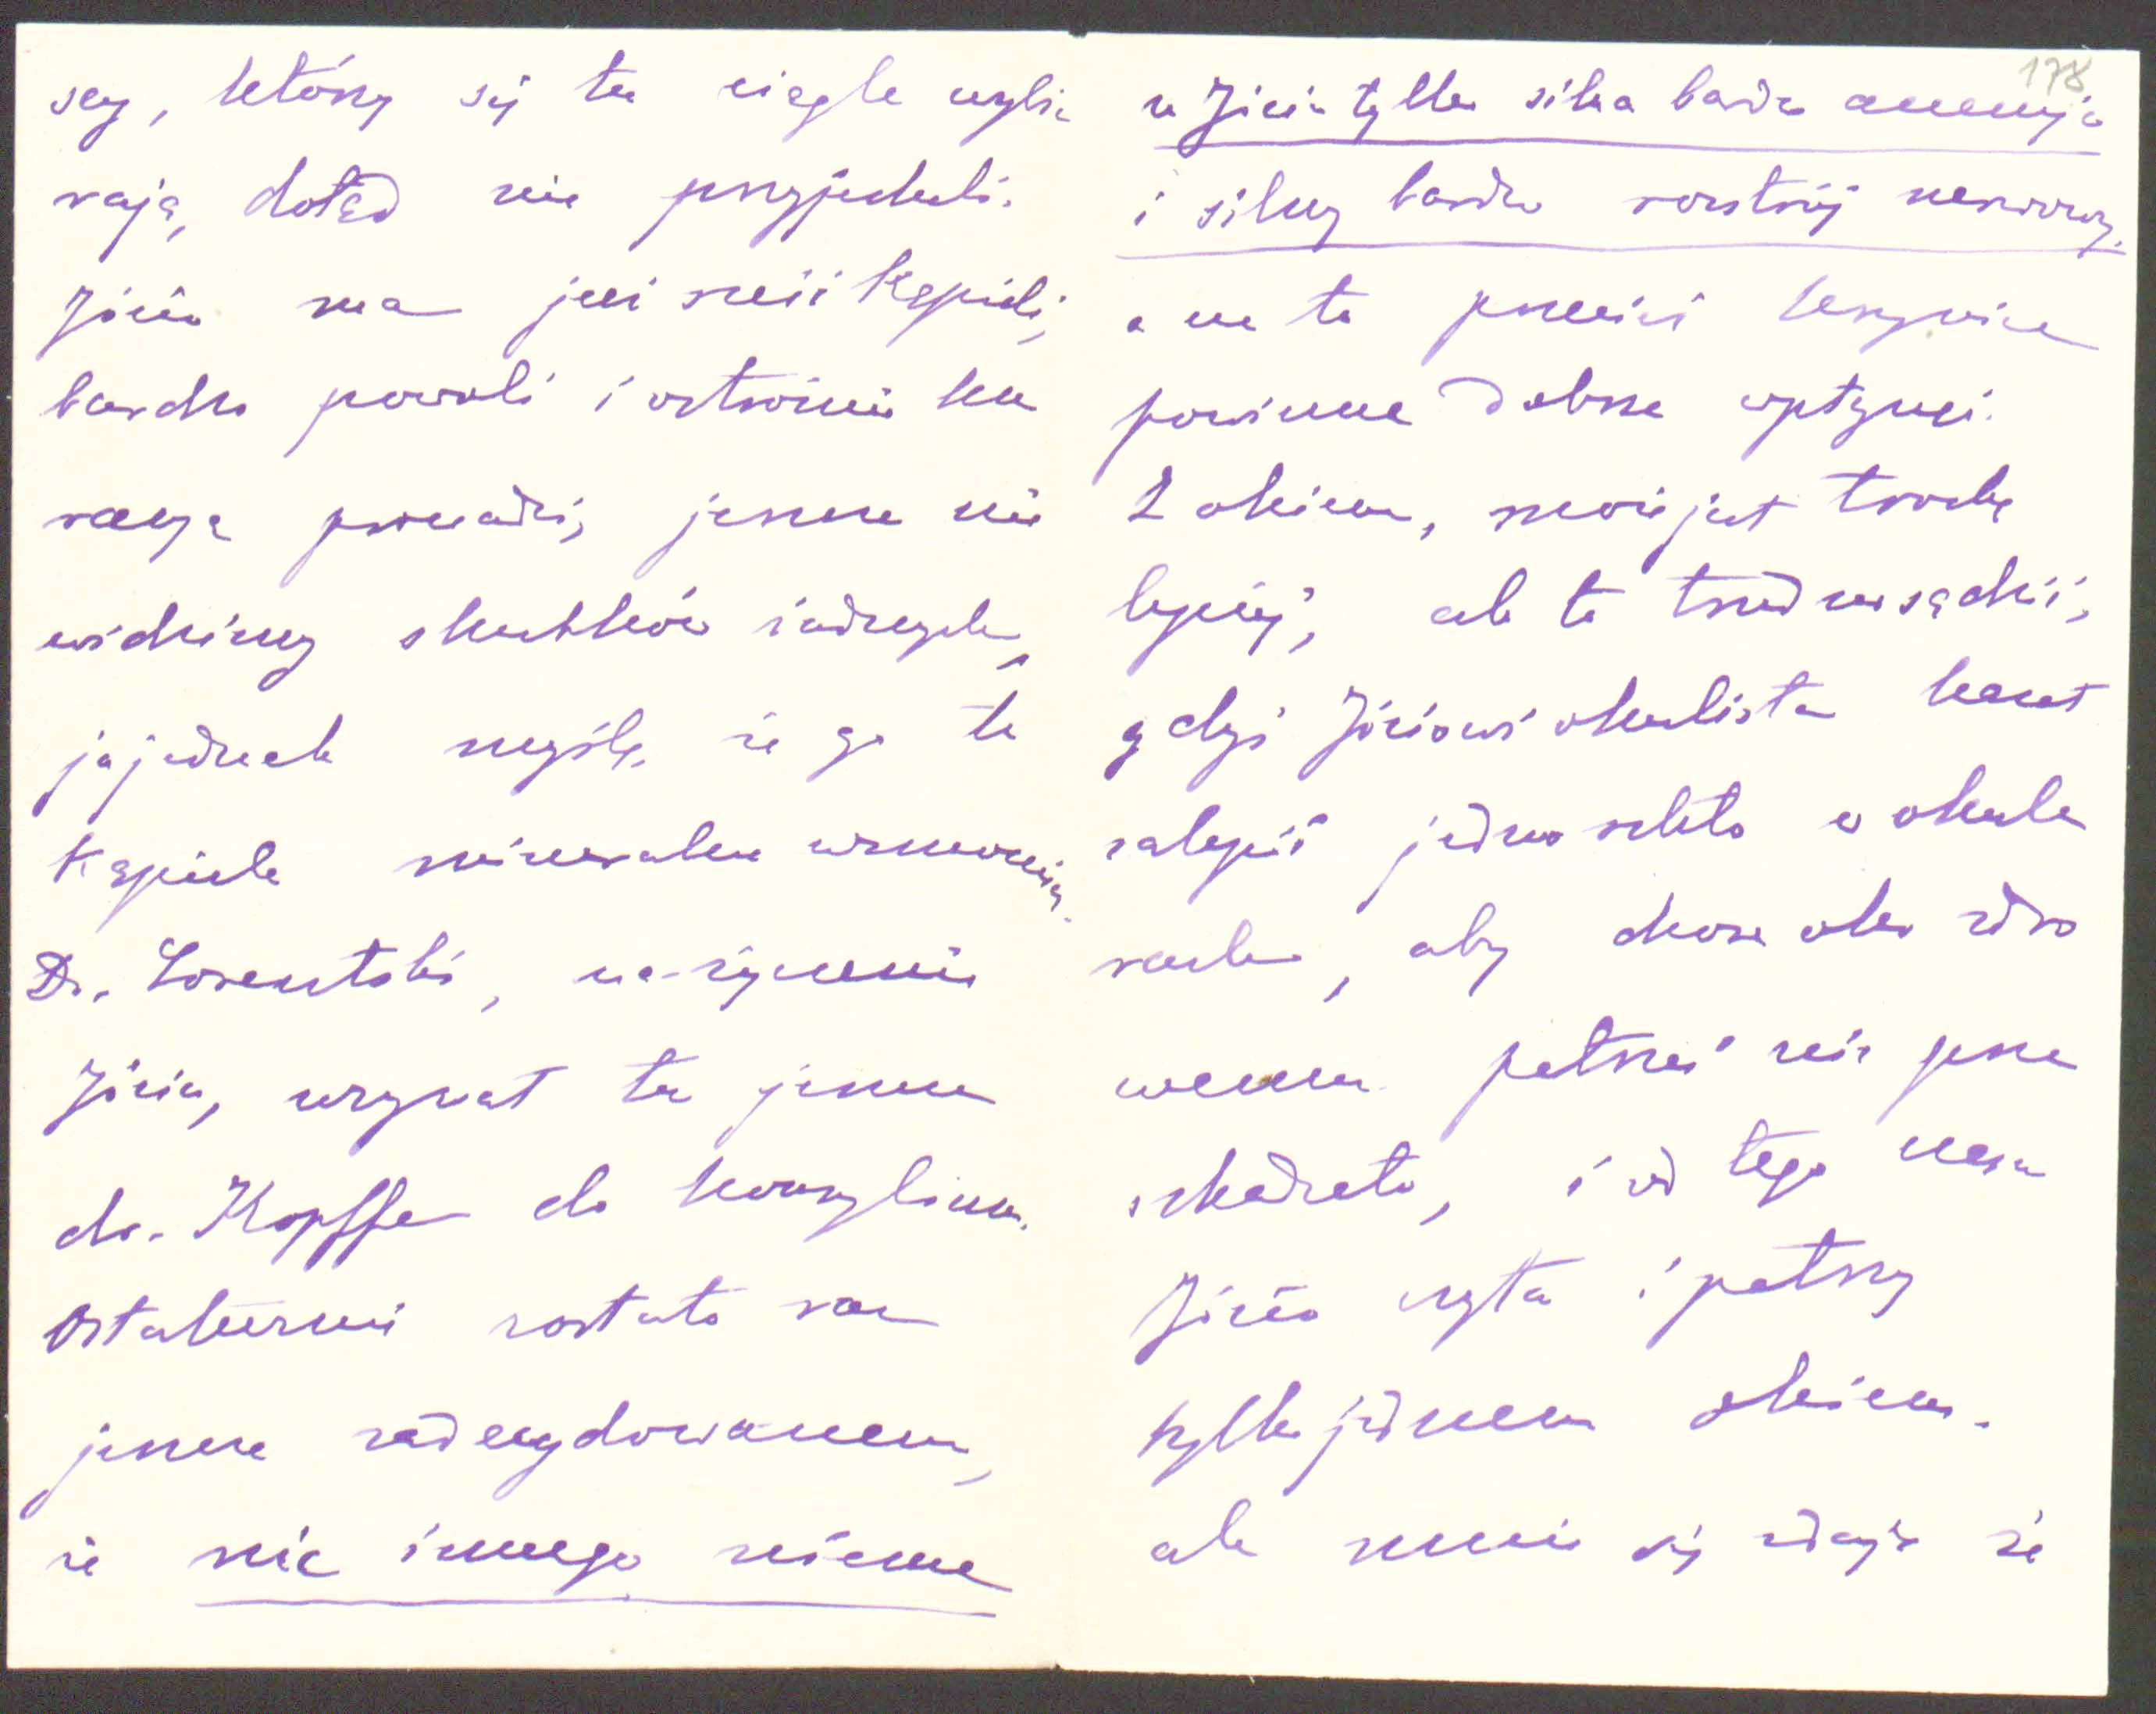 scy, którzy się tu ciągle wybie
rają, dotąd nie przyjechali.
Józio ma już sześć kąpieli,
bardzo powoli i ostrożnie ku
racyę prowadzi, jeszcze nie
widzimy skutków żadnych,
ja jednak myślę, że go te
kąpiele mineralne wzmocnią.
Dr. Lorentski, na życzenie
Józia, wezwał tu jeszcze
dr. Kopffa do konsylium.
Ostatecznie zostało raz
jeszcze zadecydowanem,
że nic innego niema
178
u Józia tylko silna bardzo anemja
i silny bardzo rozstrój nerwowy,
a na to przecież Krynica
powinna dobrze wpłynąć.
Z okiem, może jest trochę
lepiej, ale to trudno sądzić,
gdyż Józiowi okulista kazał
zalepić jedno szkło w okula
rach, aby chore oko zdro
wemu patrzeć nie prze
szkadzało, i od tego czasu
Józio czyta i patrzy
tylko jednem okiem.
ale mnie się zdaje że